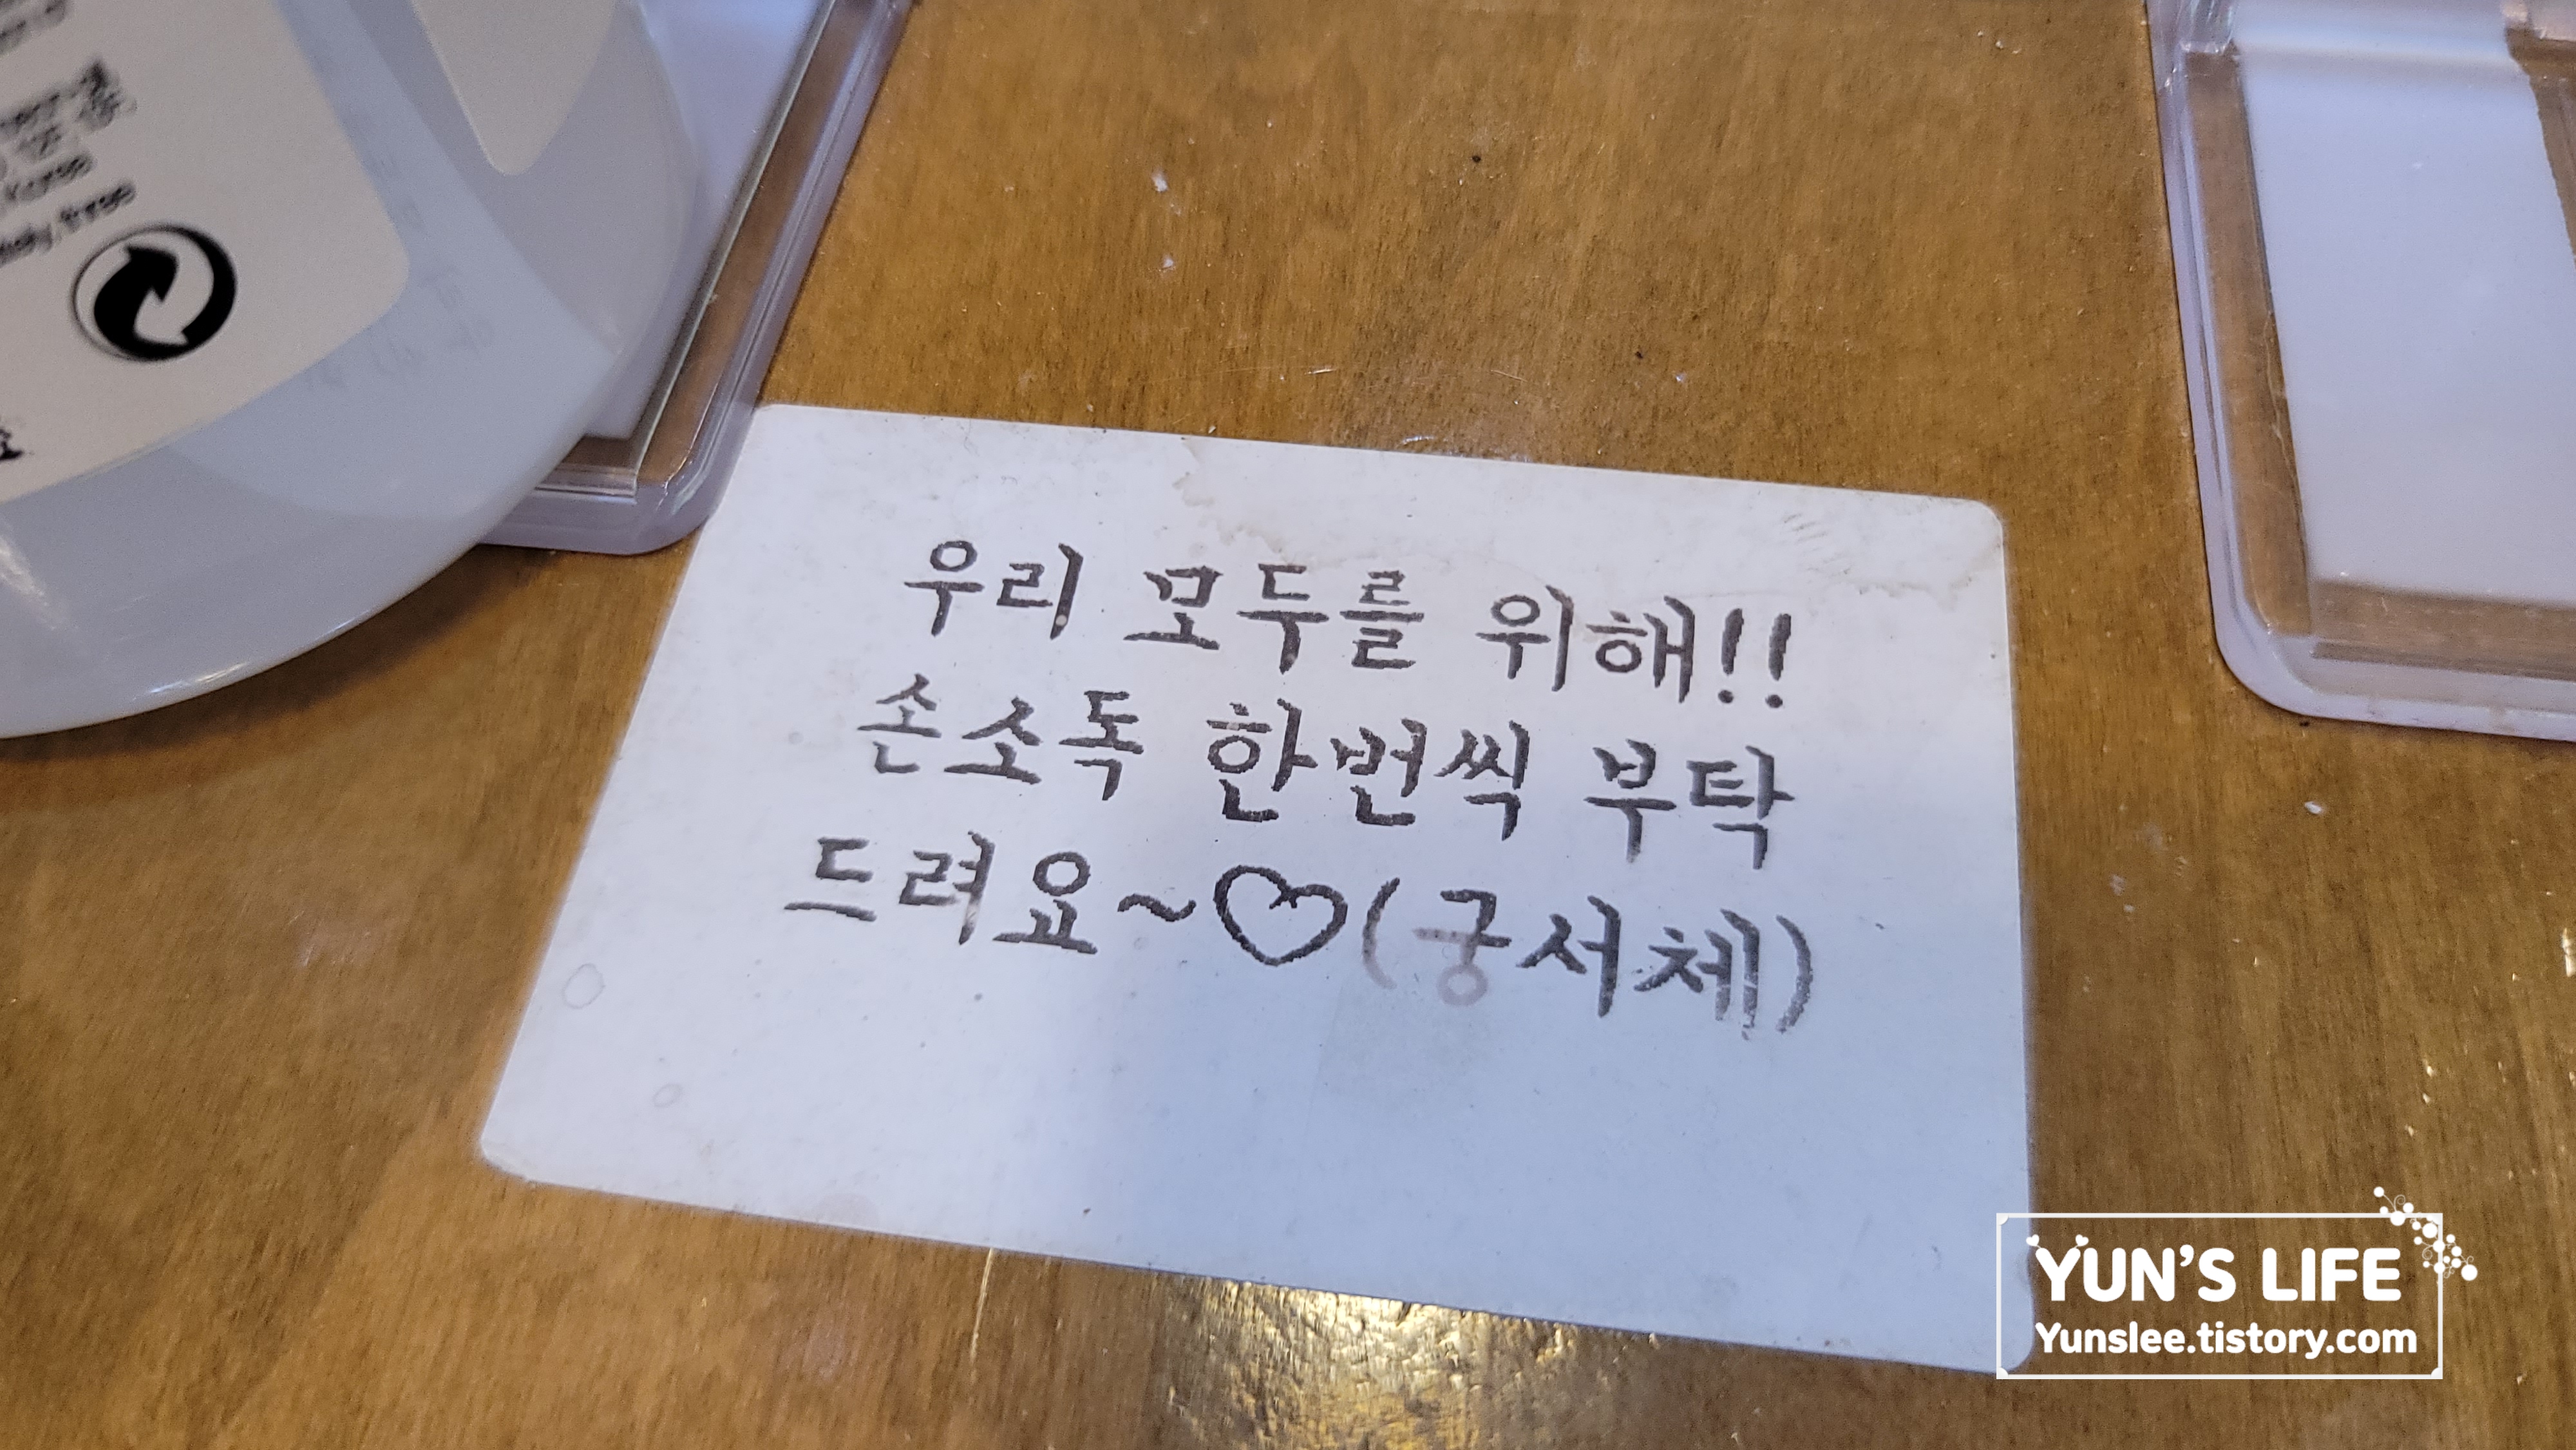 우리 모두를 위해!!
손소독 한번씩 부탁
드려요~♡(궁서체)
YUN'S LIFE
Yunslee.tistory.com